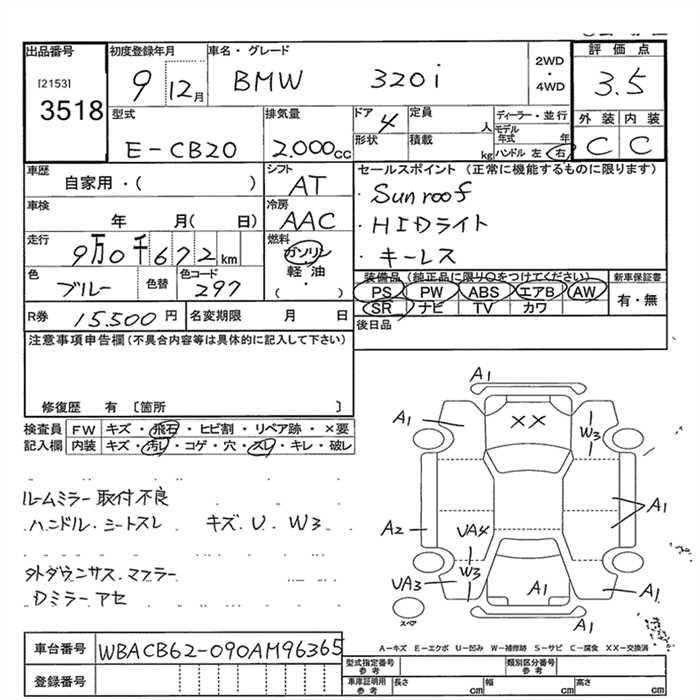 出品番号
[2153]
3518
初度登録年月
9 12月
車名・グレード
BMW 320i
2WD
・
4WD
評価点
3.5
外装 内装
C C
型式
E-CB20
排気量
2.000cc
ドア
4
形状
定員
人
積載
kg
ディーラー・並行
モデル
年式 年
ハンドル 左 右
車歴
自家用・( )
シフト
AT
車検
年 月( 日)
冷房
AAC
走行
9万0千672km
燃料
ガソリン
・
軽油
・
( )
色
ブルー
色替
色コード
297
R券
15.500円
名変期限 月 日
セールスポイント (正常に機能するものに限ります)
・Sunroof
・HIDライト
・キーレス
装備品(純正品に限り○をつけてください)
PS PW ABS エアB AW
SR ナビ TV カワ
新車保証書
有・無
後日品
注意事項申告欄(不具合内容等は具体的に記入して下さい)
修復歴 有 〔箇所 〕
検査員
記入欄
FW キズ・飛石・ヒビ割・リペア跡・×要
内装 キズ・汚レ・コゲ・穴・スレ・キレ・破レ
ルームミラー取付不良
ハンドル・シートスレ キズ U W3
外ダウンサス.マフラー
Dミラーアセ
A1
A1
××
W3
A1
A2
UA4
W3
UA3
A1
A1
A1
スペア
A−キズ E−エクボ U−凹み W−補修跡 S−サビ C−腐食 XX−交換済
車台番号
WBACB62-090AM96365
登録番号
型式指定番号
参考
類別区分番号
参考
車庫証明用
参考
長さ cm
幅 cm
高さ cm